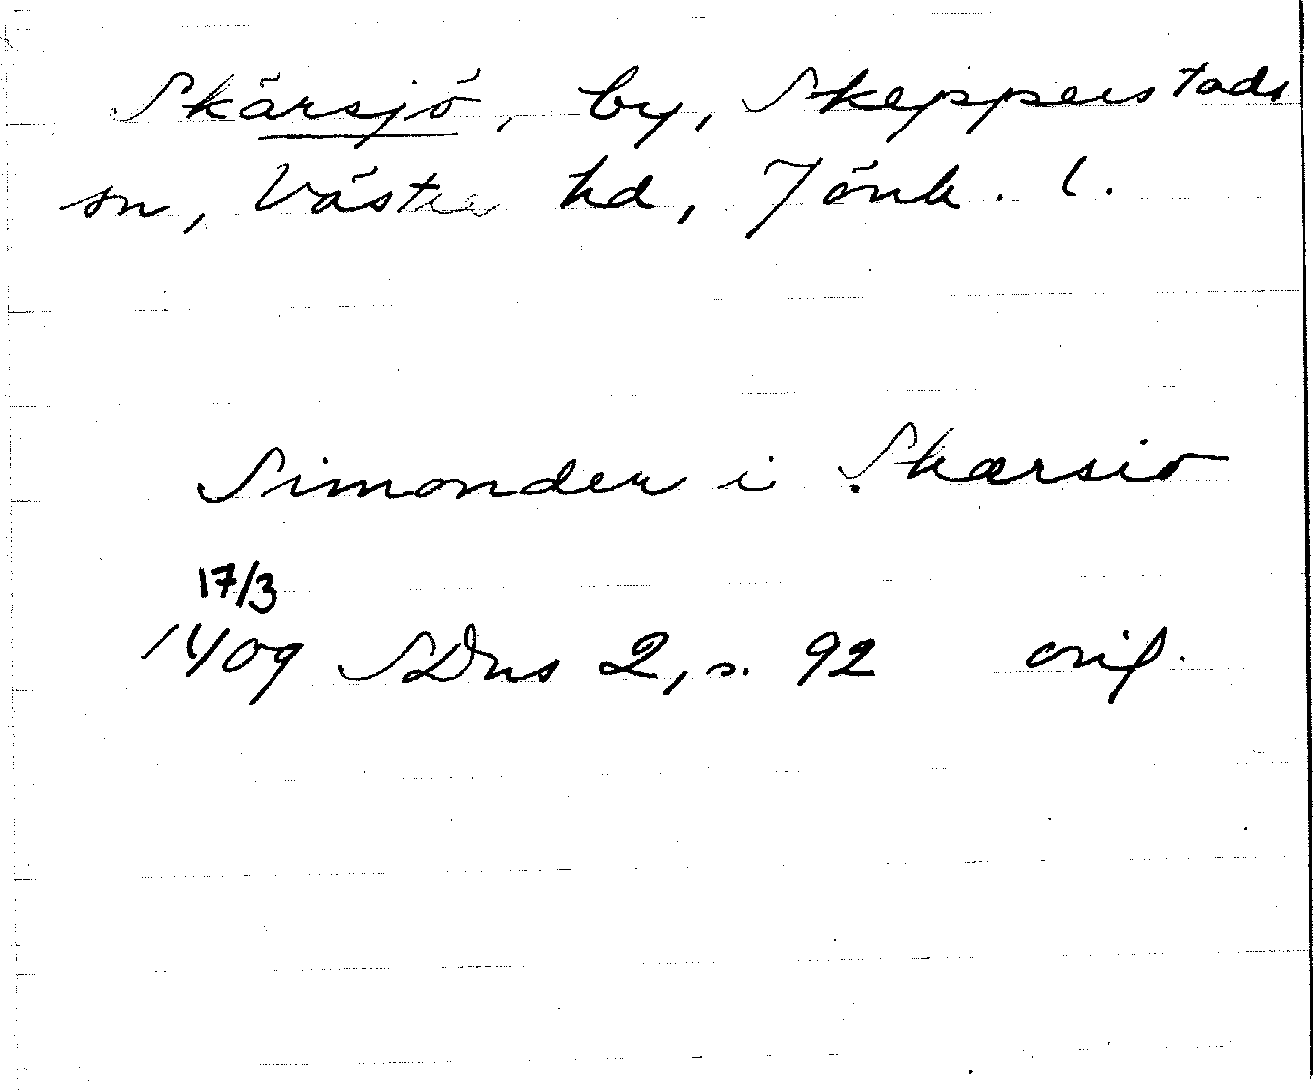 Skärsjö, by, Skepperstads
sn, Västra hd, Jönk. l.
Simonder i Skærsio
17/3
1409 SDns 2, s. 92 orig.